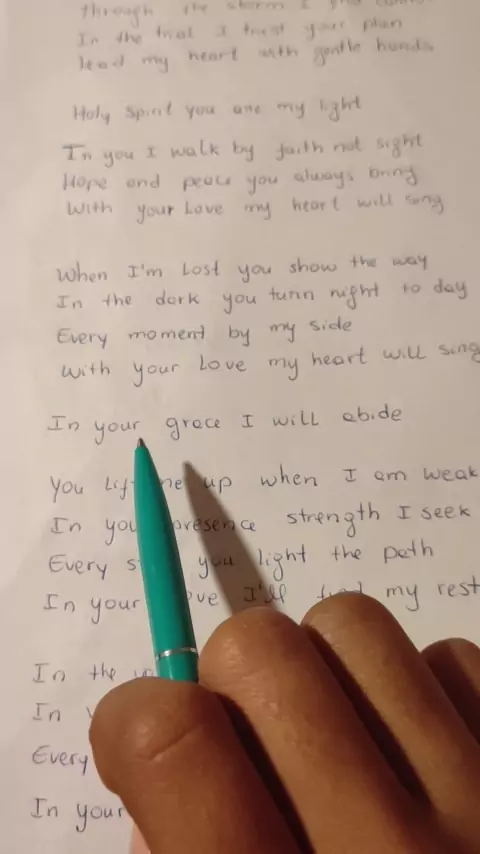 through the storm I
In the trial I trust your plan
Lead my heart with gentle hands
Holy Spirit you are my light
In you I walk by faith not sight
Hope and peace you always bring
With your Love my heart will sing
When I'm Lost you show the way
In the dark you turn night to day
Every moment by my side
With your Love my heart will sing
In your grace I will abide
You me up when I am weak
In presence strength I seek
Every you light the path
In your I'll my rest
In the
In
Every
In your